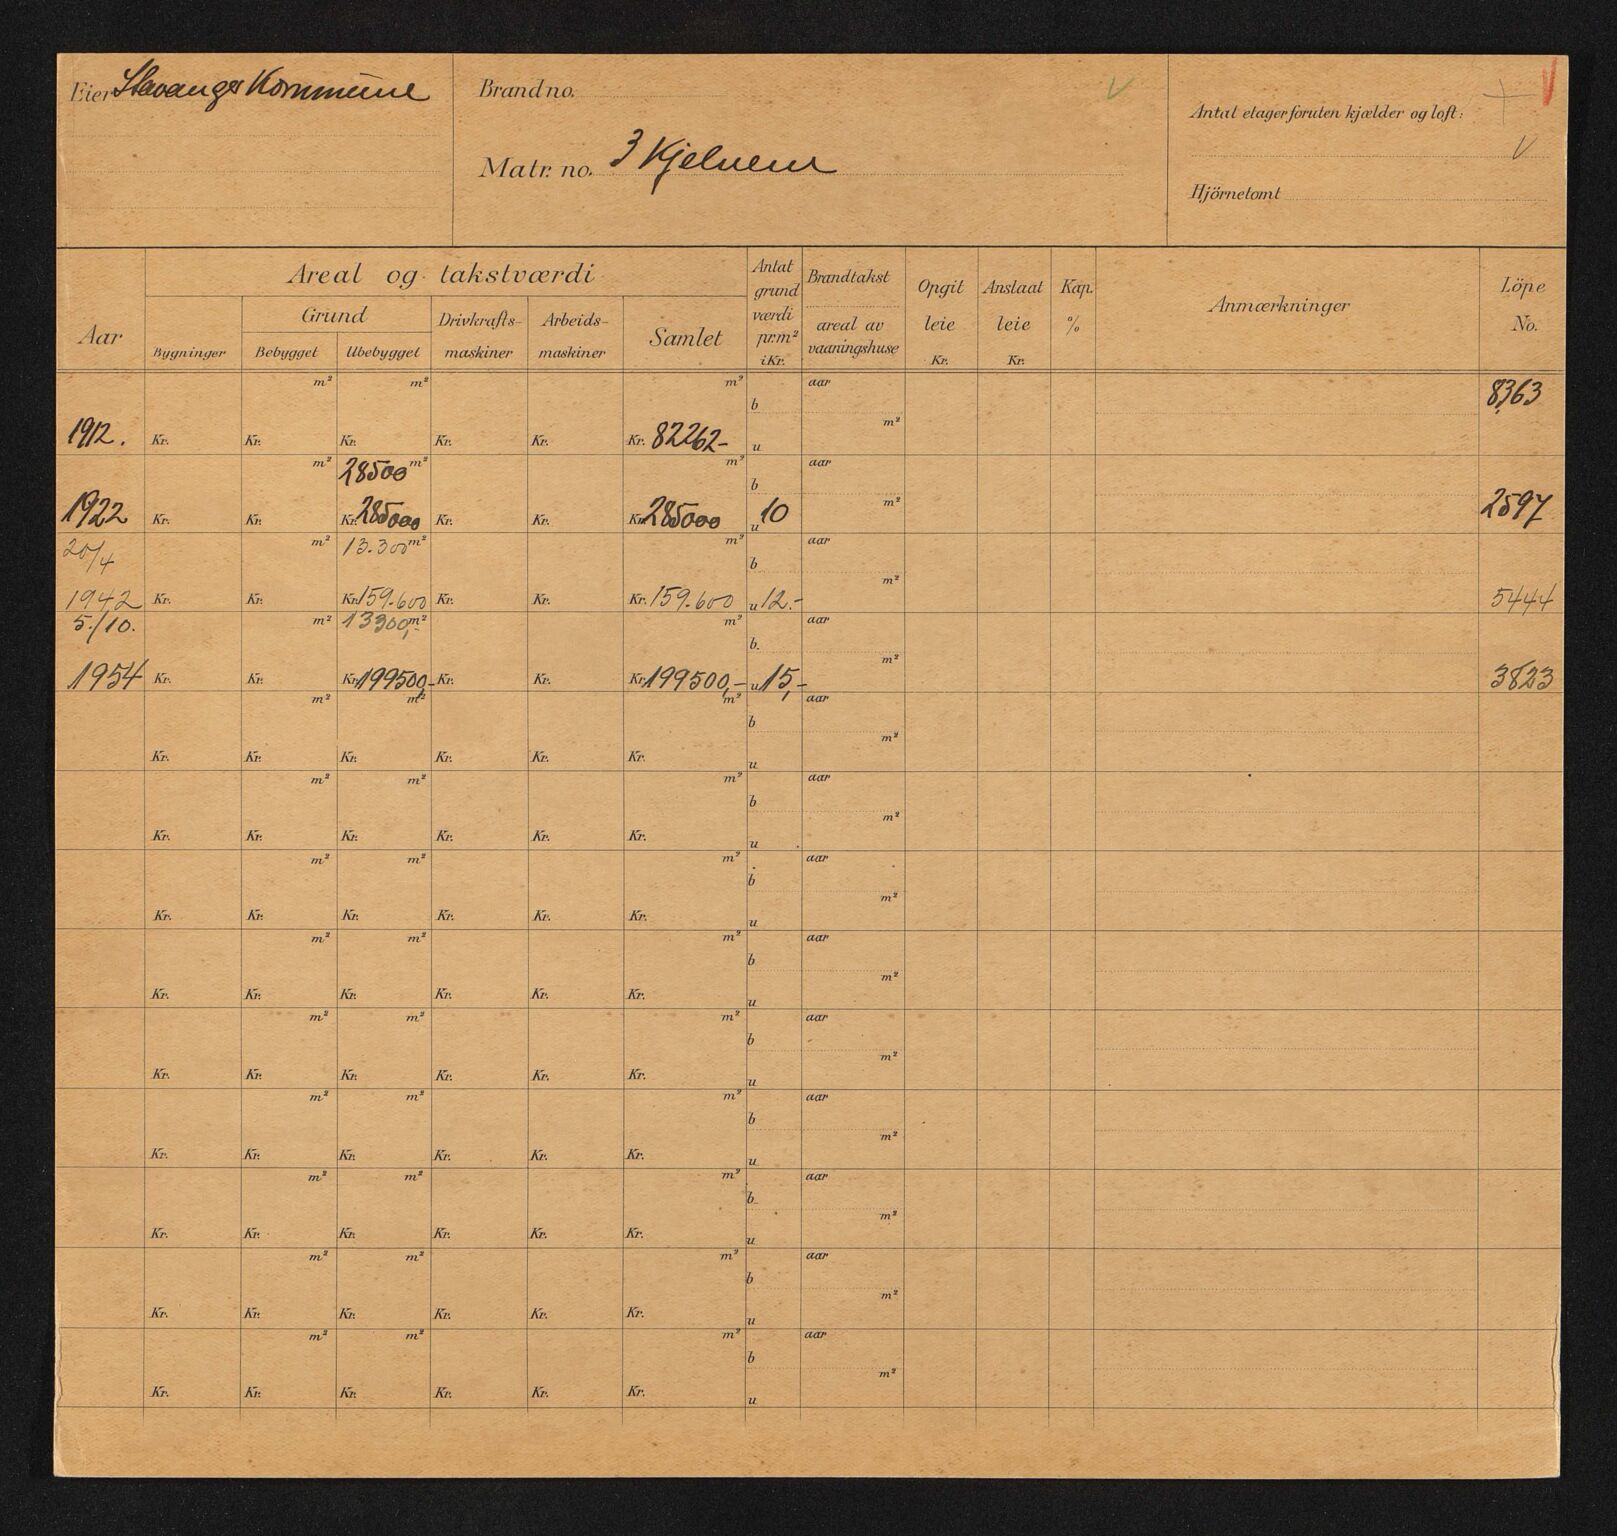 Eier Stavanger Kommune
Brand no.
Matr. no. 3 Kjelvene
Antal etager foruten kjælder og loft:
Hjörnetomt
Aar
Areal og takstværdi
Bygninger
Grund
Bebygget
Ubebygget
Drivkrafts-
maskiner
Arbeids-
maskiner
Samlet
Antat
grund
værdi
pr. m²
i Kr.
Brandtakst
areal av
vaaningshuse
Opgit
leie
Kr.
Anslaat
leie
Kr.
Kap.
%
Anmærkninger
Löpe
No.
m² m² m² b aar m² 8363
1912. Kr. Kr. Kr. Kr. Kr. Kr. 82262- u
m² 28500 m² m² b aar m²
1922 Kr. Kr. Kr. 285000 Kr. Kr. Kr. 285000 u 10 2597
20/4 m² 13.300 m² m² b aar m²
1942 Kr. Kr. Kr. 159.600 Kr. Kr. Kr. 159.600 u 12.- 5444
5./10. m² 13300,- m² m² b. aar m²
1954 Kr. Kr. Kr. 199500,- Kr. Kr. Kr. 199500,- u 15,- 3823
m² m² m² b aar m²
Kr. Kr. Kr. Kr. Kr. Kr. u
m² m² m² b aar m²
Kr. Kr. Kr. Kr. Kr. Kr. u
m² m² m² b aar m²
Kr. Kr. Kr. Kr. Kr. Kr. u
m² m² m² b aar m²
Kr. Kr. Kr. Kr. Kr. Kr. u
m² m² m² b aar m²
Kr. Kr. Kr. Kr. Kr. Kr. u
m² m² m² b aar m²
Kr. Kr. Kr. Kr. Kr. Kr. u
m² m² m² b aar m²
Kr. Kr. Kr. Kr. Kr. Kr. u
m² m² m² b aar m²
Kr. Kr. Kr. Kr. Kr. Kr. u
m² m² m² b aar m²
Kr. Kr. Kr. Kr. Kr. Kr. u